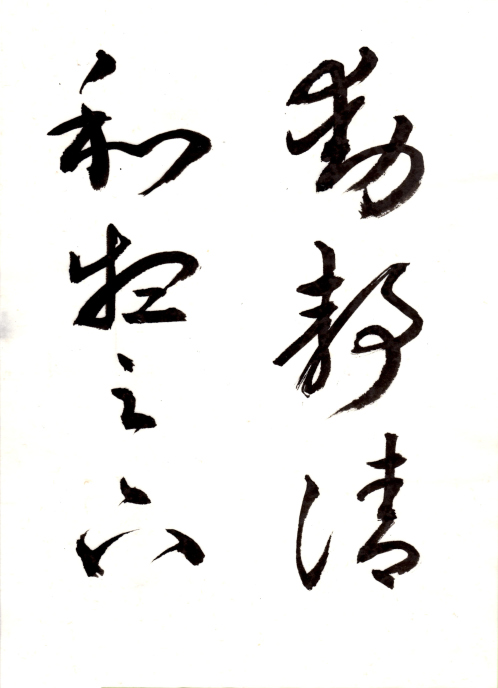 動静清
和之六